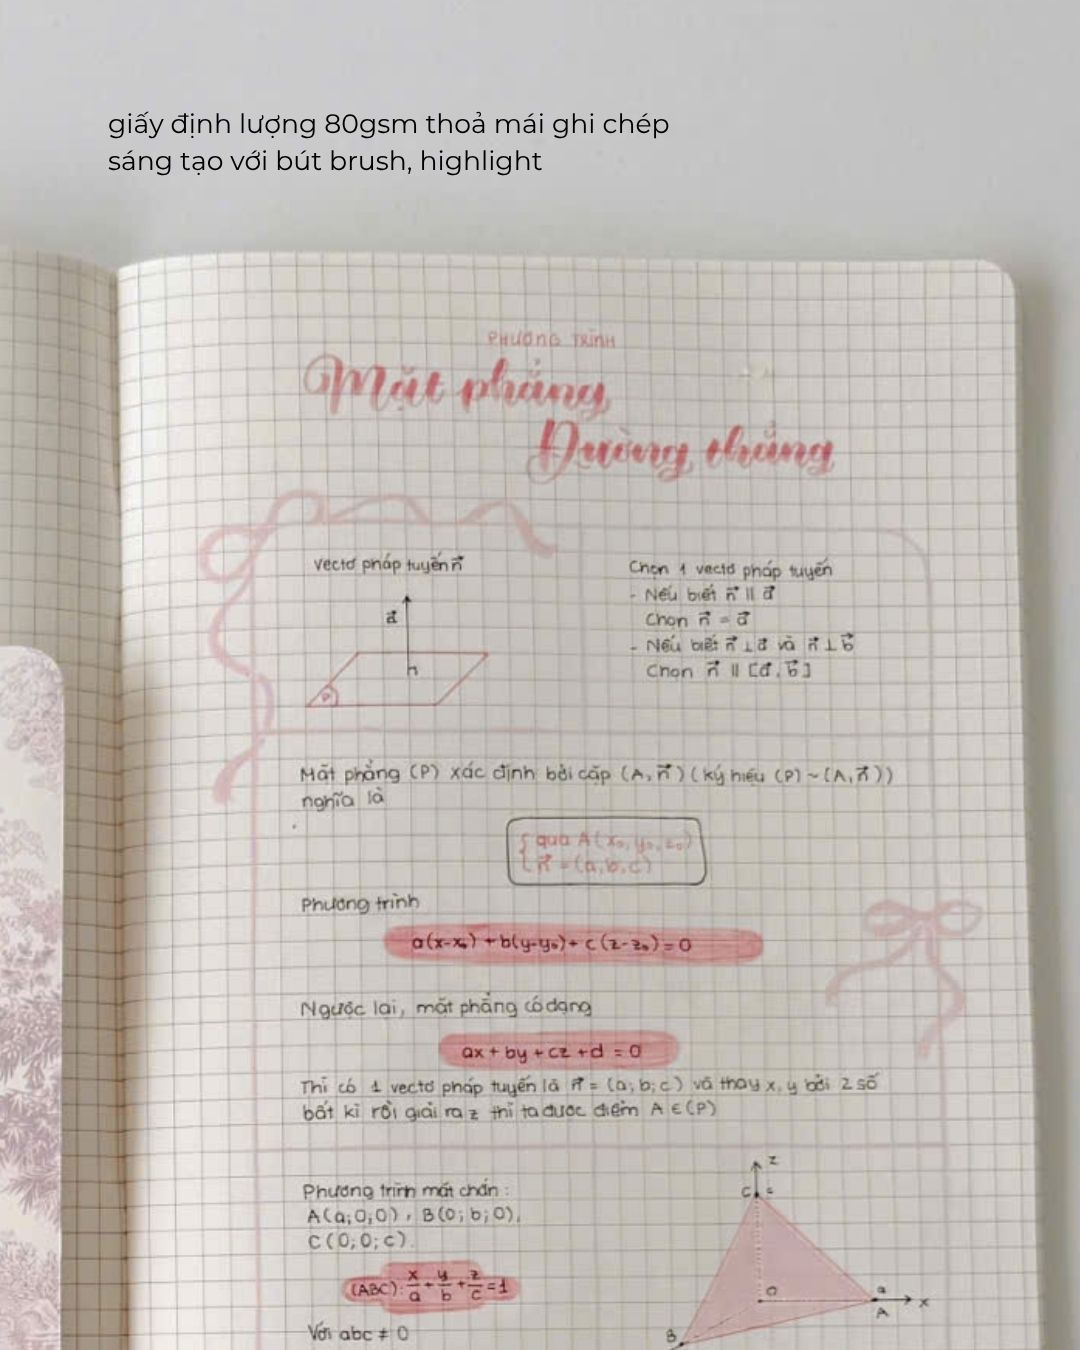 giấy định lượng 80gsm thoả mái ghi chép
sáng tạo với bút brush, highlight
PHƯƠNG TRÌNH
Mặt phẳng
Đường thẳng
Vectơ pháp tuyến n⃗
a⃗
P
Chọn 1 vectơ pháp tuyến
- Nếu biết n⃗ || a⃗
Chọn n⃗ = a⃗
- Nếu biết n⃗ ⊥ a⃗ và n⃗ ⊥ b⃗
Chọn n⃗ || [a⃗, b⃗]
Mặt phẳng (P) xác định bởi cặp (A, n⃗) (ký hiệu (P) ~ (A, n⃗))
nghĩa là
{ qua A(x₀, y₀, z₀)
n⃗ = (a, b, c)
Phương trình
a(x-x₀) + b(y-y₀) + c(z-z₀) = 0
Ngược lại, mặt phẳng có dạng
ax + by + cz + d = 0
Thì có 1 vectơ pháp tuyến là n⃗ = (a; b; c) và thay x, y bởi 2 số
bất kì rồi giải ra z thì ta được điểm A ∈ (P)
Phương trình mặt chắn :
A(a; 0; 0), B(0; b; 0),
C(0; 0; c).
(ABC): x/a + y/b + z/c = 1
Với abc ≠ 0
z
C c
O
a
A
x
B